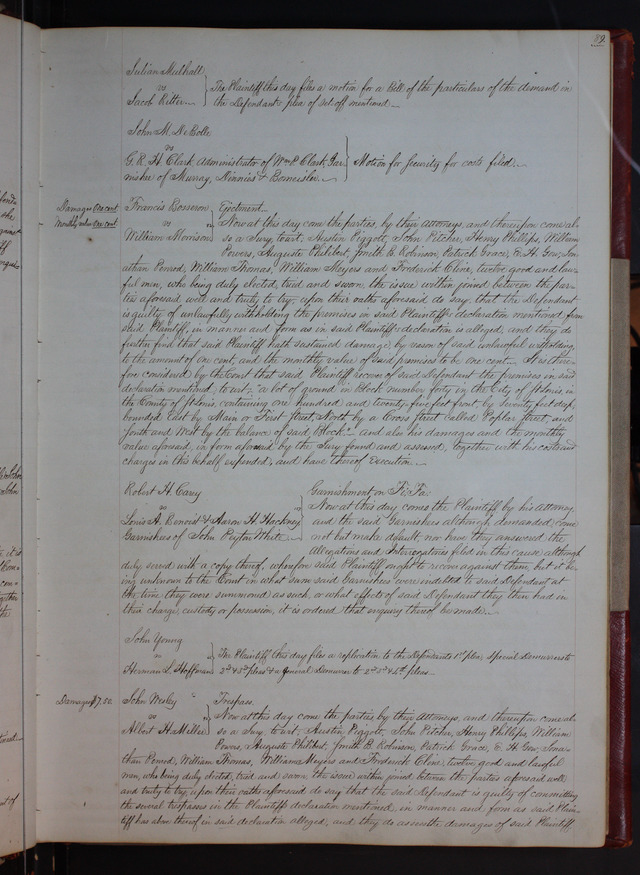 89
Julian Mulhall
vs
Jacob Ritter
The Plaintiff this day files a motion for a Bill of the particulars of the demand in
the Defendants plea of set off mentioned
John M. DeBolle
vs
G. R. H. Clark Administrator of Wm P. Clark Gar
nishee of Murray, Ninnies & Bomeisler
Motion for Security for costs filed
Damages One cent
Monthly value One cent
Francis Bosseron
vs
William Morrison
Ejectment
Now at this day come the parties, by their Attorneys, and thereupon come al-
so a Jury, towit, Austin Piggott, John Pitcher, Henry Phillips, William
Powers, Auguste Philibert, Smith B. Robinson, Patrick Grace, E. H. Gow, Jon
athan Penrod, William Thomas, William Meyers and Frederick Cline, twelve good and law
ful men, who being duly elected, tried and sworn, the issue within joined between the par
ties aforesaid well and truly to try, upon their oaths aforesaid do say, that the Defendant
is guilty of unlawfully withholding the premises in said Plaintiffs declaration mentioned from
said Plaintiff, in manner and form as in said Plaintiffs declaration is alleged, and they do
further find that said Plaintiff hath sustained damage, by reason of said unlawful withholding,
to the amount of one cent, and the monthly value of said premises to be one cent. It is there
fore considered by the Court that said Plaintiff recover of said Defendant the premises in said
declaration mentioned, to wit, "a lot of ground in Block number forty in the City of St Louis, in
the County of St Louis, containing one hundred and twenty five feet front, by seventy feet deep,
bounded East by Main or First Street, North by a Cross Street called Poplar Street, and
South and West by the balance of said Block", and also his damages and the monthly
value aforesaid, in form aforesaid by the Jury found and assessed, together with his costs and
charges in this behalf expended, and have thereof execution
Robert H. Carey
vs
Louis A. Benoist & Aaron H. Hackney
Garnishees of John Peyton White
Garnishment on Fi Fa
Now at this day comes the Plaintiff by his Attorney
and the said Garnishees although demanded, come
not but make default, nor have they answered the
Allegations and Interrogatories filed in this cause, although
duly served with a copy thereof, wherefore said Plaintiff ought to recover against them, but it be
ing unknown to the Court in what sum said Garnishees were indebted to said Defendant at
the time they were summoned as such, or what effects of said Defendant they then had in
their charge, custody or possession, it is ordered that enquiry thereof be made
John Young
vs
Herman L. Hoffman
The Plaintiff this day files a replication to the Defendants 1st plea, special Demurrers to
2d & 3d pleas & a general Demurrer to 2d 3d & 4th pleas
Damages $7.50
John Wesley
vs
Albert H. McKee
Trespass
Now at this day come the parties by their Attorneys, and thereupon come al-
so a Jury, towit, Austin Piggott, John Pitcher, Henry Phillips, William
Powers, Auguste Philibert, Smith B. Robinson, Patrick Grace, E. H. Gow, Jona-
than Penrod, William Thomas, William Meyers and Frederick Cline, twelve good and lawful
men, who being duly elected, tried and sworn the issue within joined between the parties aforesaid well
and truly to try, upon their oaths aforesaid do say that the said Defendant is guilty of committing
the several trespasses in the Plaintiffs declaration mentioned, in manner and form as said Plain-
tiff has above thereof in said declaration alleged, and they do assess the damages of said Plaintiff